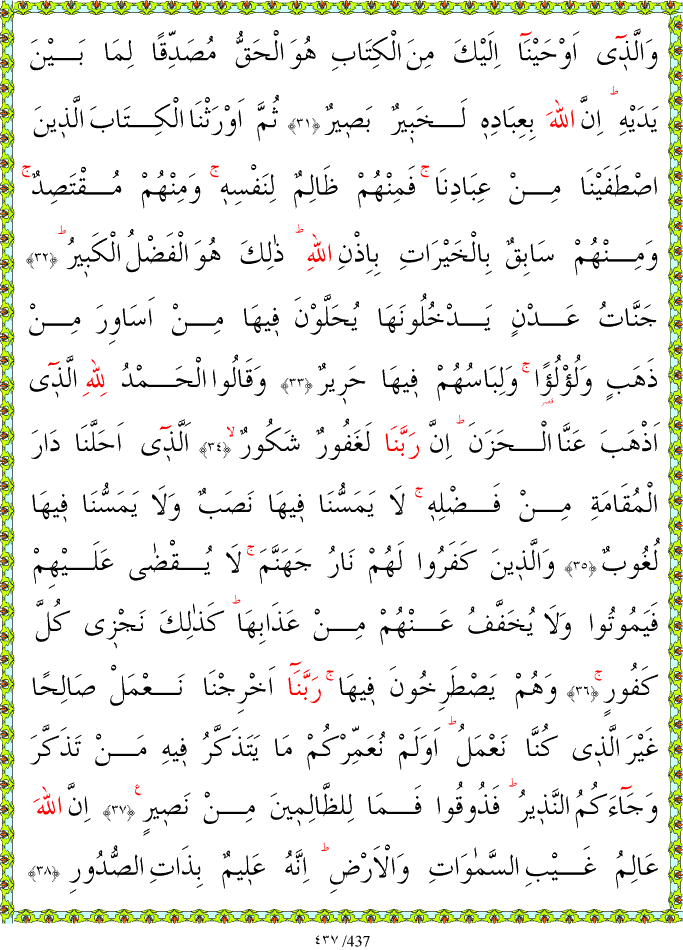 وَالَّذ۪ٓي اَوْحَيْنَٓا اِلَيْكَ مِنَ الْكِتَابِ هُوَ الْحَقُّ مُصَدِّقًا لِمَا بَيْنَ
يَدَيْهِۜ اِنَّ اللّٰهَ بِعِبَادِه۪ لَخَب۪يرٌ بَص۪يرٌ ﴿٣١﴾ ثُمَّ اَوْرَثْنَا الْكِتَابَ الَّذ۪ينَ
اصْطَفَيْنَا مِنْ عِبَادِنَاۚ فَمِنْهُمْ ظَالِمٌ لِنَفْسِه۪ۚ وَمِنْهُمْ مُقْتَصِدٌۚ
وَمِنْهُمْ سَابِقٌ بِالْخَيْرَاتِ بِاِذْنِ اللّٰهِۜ ذٰلِكَ هُوَ الْفَضْلُ الْكَب۪يرُۜ ﴿٣٢﴾
جَنَّاتُ عَدْنٍ يَدْخُلُونَهَا يُحَلَّوْنَ ف۪يهَا مِنْ اَسَاوِرَ مِنْ
ذَهَبٍ وَلُؤْلُؤً۬اۚ وَلِبَاسُهُمْ ف۪يهَا حَر۪يرٌ ﴿٣٣﴾ وَقَالُوا الْحَمْدُ لِلّٰهِ الَّذ۪ٓي
اَذْهَبَ عَنَّا الْحَزَنَۜ اِنَّ رَبَّنَا لَغَفُورٌ شَكُورٌۙ ﴿٣٤﴾ اَلَّذ۪ٓي اَحَلَّنَا دَارَ
الْمُقَامَةِ مِنْ فَضْلِه۪ۚ لَا يَمَسُّنَا ف۪يهَا نَصَبٌ وَلَا يَمَسُّنَا ف۪يهَا
لُغُوبٌ ﴿٣٥﴾ وَالَّذ۪ينَ كَفَرُوا لَهُمْ نَارُ جَهَنَّمَۚ لَا يُقْضٰى عَلَيْهِمْ
فَيَمُوتُوا وَلَا يُخَفَّفُ عَنْهُمْ مِنْ عَذَابِهَاۜ كَذٰلِكَ نَجْز۪ي كُلَّ
كَفُورٍۚ ﴿٣٦﴾ وَهُمْ يَصْطَرِخُونَ ف۪يهَاۚ رَبَّنَٓا اَخْرِجْنَا نَعْمَلْ صَالِحًا
غَيْرَ الَّذ۪ي كُنَّا نَعْمَلُۜ اَوَلَمْ نُعَمِّرْكُمْ مَا يَتَذَكَّرُ ف۪يهِ مَنْ تَذَكَّرَ
وَجَٓاءَكُمُ النَّذ۪يرُۜ فَذُوقُوا فَمَا لِلظَّالِم۪ينَ مِنْ نَص۪يرٍ۟ ﴿٣٧﴾ اِنَّ اللّٰهَ
عَالِمُ غَيْبِ السَّمٰوَاتِ وَالْاَرْضِۜ اِنَّهُ عَل۪يمٌ بِذَاتِ الصُّدُورِ ﴿٣٨﴾
٤٣٧ /437